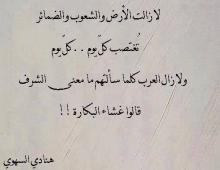 لا زالت الأرض والشعوب والضمائر
تُغتصب كلّ يوم . . كلّ يوم
ولا زال العرب كلما سألتهم ما معنى الشرف
قالوا غشاء البكارة ! !
هنادي السهوي